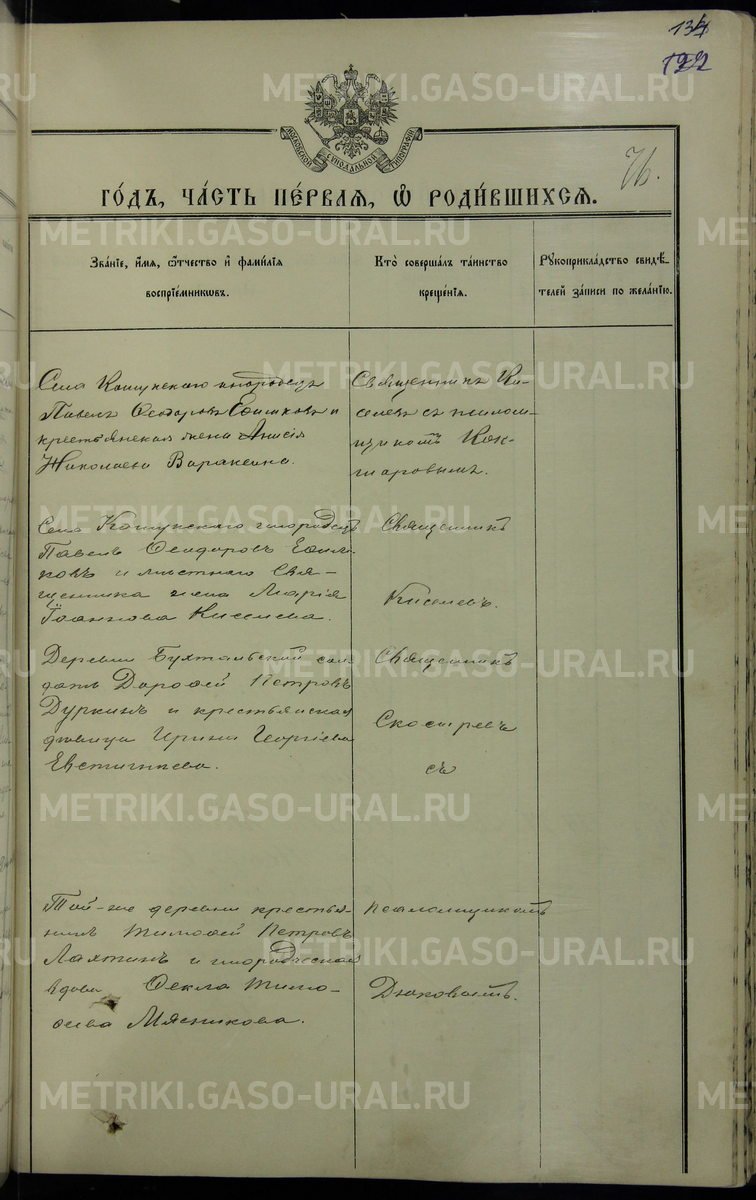 134
122
МОСКОВСКОЙ СѴНОДАЛЬНОЙ ТИПОГРАФІИ
76.
ГО́ДЪ, ЧА́СТЬ ПЕ́РВАЯ, Ѡ РОДИ́ВШИХСЯ.
Зва́нїе, и́мя, ѻ҆́тчество и҆ фами́лїя
воспрїе́мникѡвъ.
Кто̀ соверша́лъ та́инство
креще́нїя.
Рꙋкоприкла́дство свидѣ́-
телей за́писи по жела́нїю.
Села Кошукскаго инородецъ
Павелъ Ѳеодоровъ Ефимковъ и
крестьянская жена Анисія
Николаева Варакина.
Священникъ Ки-
селевъ съ псалом-
щикомъ Кок-
шаровымъ.
Села Кошукскаго инородецъ
Павелъ Ѳеодоровъ Ефим-
ковъ и мѣстнаго Свя-
щенника жена Марія
Іоаннова Киселева.
Священникъ
Киселевъ.
Деревни сол-
датъ Дороѳей Петровъ
Дуркинъ и крестьянская
дѣвица Ирина Георгіева
Евстигнеева.
Священникъ
съ
Той-же деревни крестья-
нинъ Тимоѳей Петровъ
Лаптинъ и инородческая
вдова Ѳекла Тимо-
ѳеева Мясникова.
псаломщикомъ
Дюковымъ.
METRIKI.GASO-URAL.RU